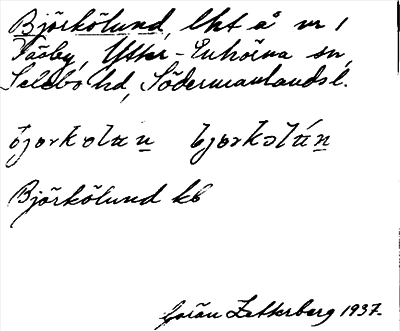 Björkölund, lht å nr 1
Väsby, Ytter-Enhörna sn,
Selebo hd, Södermanlands l.
Björkölund kb
Göran Zetterberg 1937.